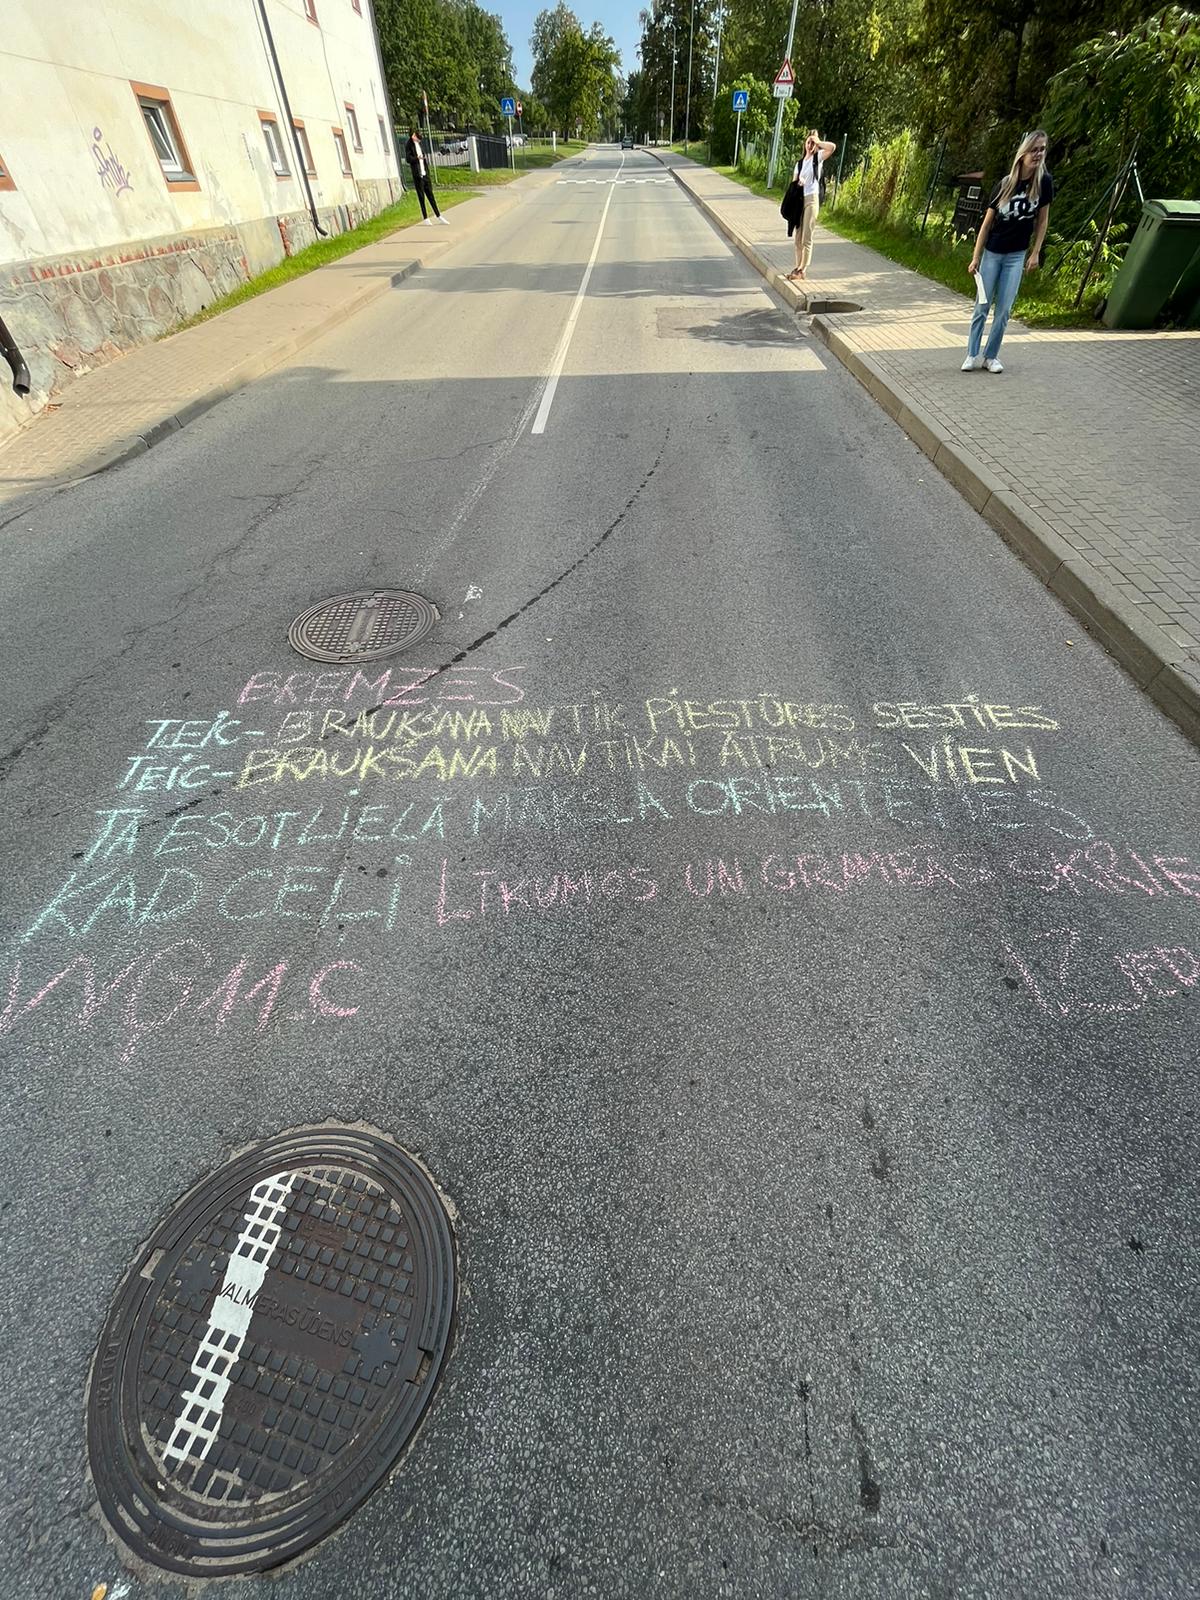 BREMZES
TEIC- BRAUKŠANA NAV TIK PIESTŪRES SĒSTIES
TEIC- BRAUKŠANA NAV TIKAI ĀTRUMS VIEN
TĀ ESOT LIELĀ MĀKSLA ORIENTĒTIES
KAD CEĻI LĪKUMOS UN GRAMBĀS SKRIE
VALMIERAS ŪDENS